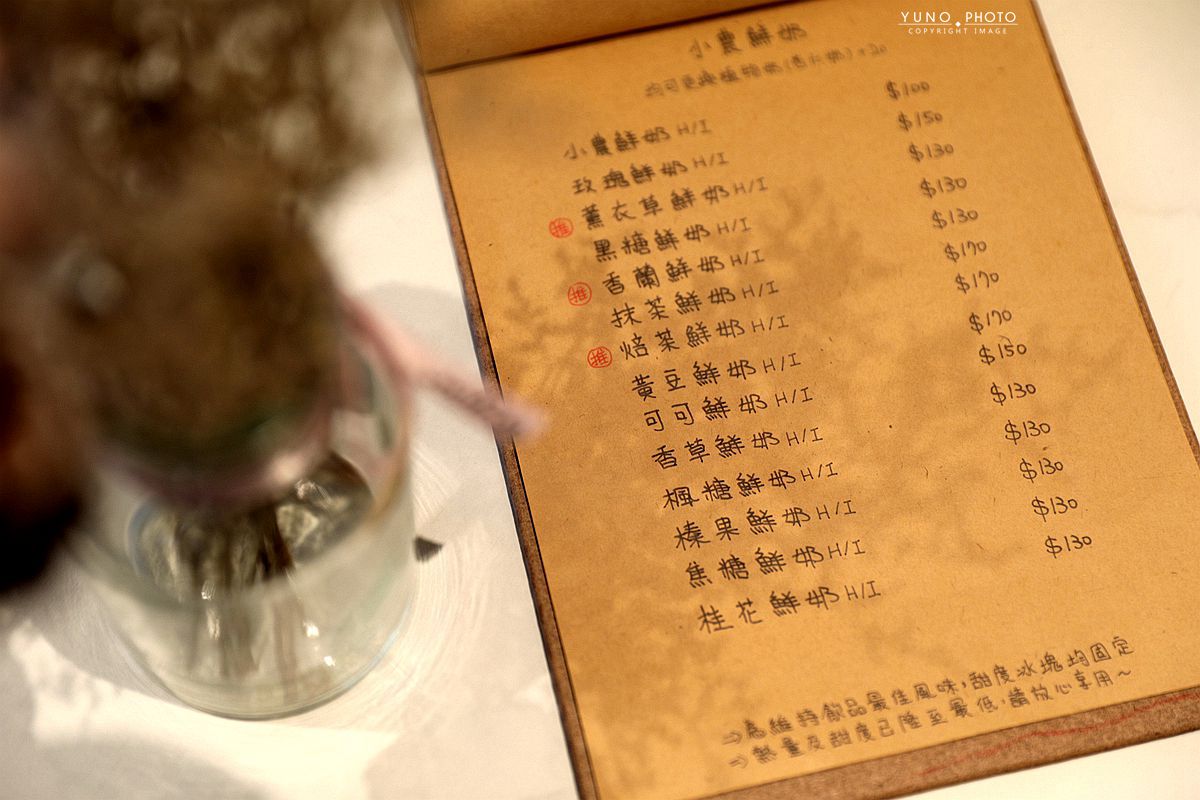 YUNO PHOTO
COPYRIGHT IMAGE
小農鮮奶
均可更換植物奶(杏仁奶)+20
小農鮮奶 H/I $100
玫瑰鮮奶 H/I $150
薰衣草鮮奶 H/I $130
推 黑糖鮮奶 H/I $130
香蘭鮮奶 H/I $130
推 抹茶鮮奶 H/I $170
焙茶鮮奶 H/I $170
推 黃豆鮮奶 H/I $170
可可鮮奶 H/I $150
香草鮮奶 H/I $130
楓糖鮮奶 H/I $130
榛果鮮奶 H/I $130
焦糖鮮奶 H/I $130
桂花鮮奶 H/I $130
⇒為維持飲品最佳風味,甜度冰塊均固定
⇒熱量及甜度已降至最低,請放心享用~